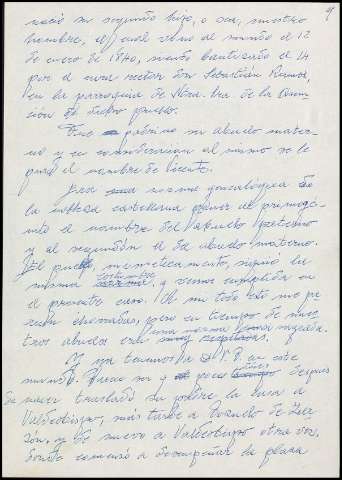 4
nació su segundo hijo, o sea, nuestro
hombre, el cual vino al mundo el 12
de enero de 1840, siendo bautizado el 14
por el cura rector don Sebastián Ramos,
en la parroquia de Ntra. Sra. de la Asun-
ción de dicho pueblo.
Fue padrino su abuelo mater-
no y en consideración al mismo se le
puso el nombre de Vicente.
Era norma genealógica de
la nobleza castellana poner al primogé-
nito el nombre del abuelo paterno
y al segundón el del abuelo materno.
El pueblo, miméticamente, siguió la
misma costumbre, y vemos cumplida en
el presente caso. A mí todo esto me pa-
recen chorradas, pero en tiempo de nues-
tros abuelos era una norma sagrada.
Y ya tenemos a D. V. P. en este
mundo. Parece ser que poco después
de nacer trasladó su padre la casa a
Valdeobispo, más tarde a Torrejo de Zar-
zón, y de nuevo a Valdeobispo otra vez,
donde comenzó a desempeñar la plaza